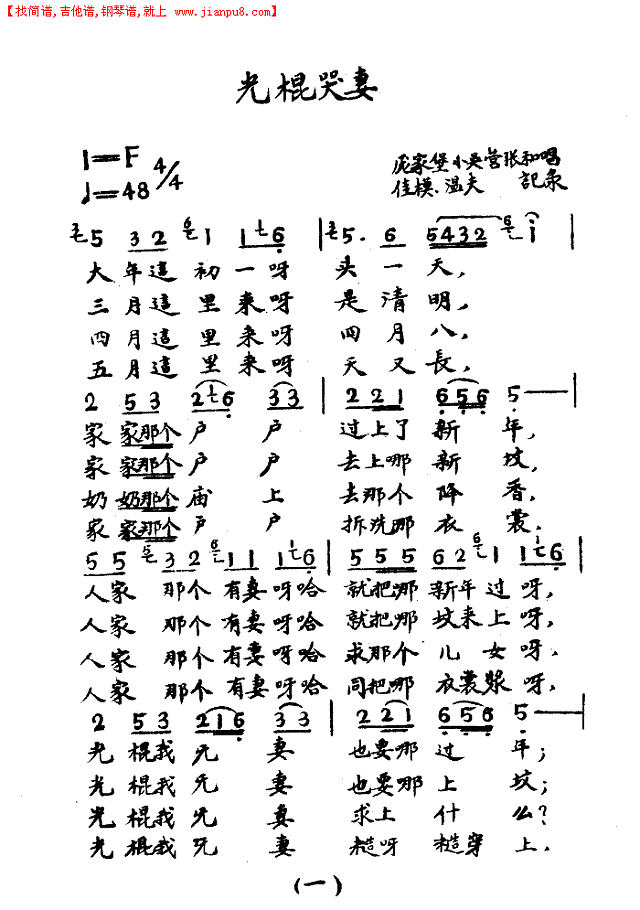 【找简谱,吉他谱,钢琴谱,就上 www.jianpu8.com】
光棍哭妻
1=F 4/4
♩=48
庞家堡小吴营张和唱
佳模、温夫 記录
5 32 1 176 | 5. 6 5432 1
大年這初一呀 头一天,
三月這里来呀 是清明,
四月這里来呀 四月八,
五月這里来呀 天又長,
2 53 276 33 | 221 656 5—
家家那个户户 过上了新年,
家家那个户户 去上哪新坟,
奶奶那个庙上 去那个降香,
家家那个户户 拆洗那衣裳.
55 32 11 176 | 555 62 1176
人家那个有妻呀哈 就把那新年过呀,
人家那个有妻呀哈 就把哪坟来上呀,
人家那个有妻呀哈 求那个儿女呀,
人家那个有妻呀哈 同把哪衣裳浆呀,
2 53 216 33 | 221 656 5—
光棍我无妻 也要哪过年;
光棍我无妻 也要哪上坟;
光棍我无妻 求上什么?
光棍我无妻 糙呀糙穿上.
(一)